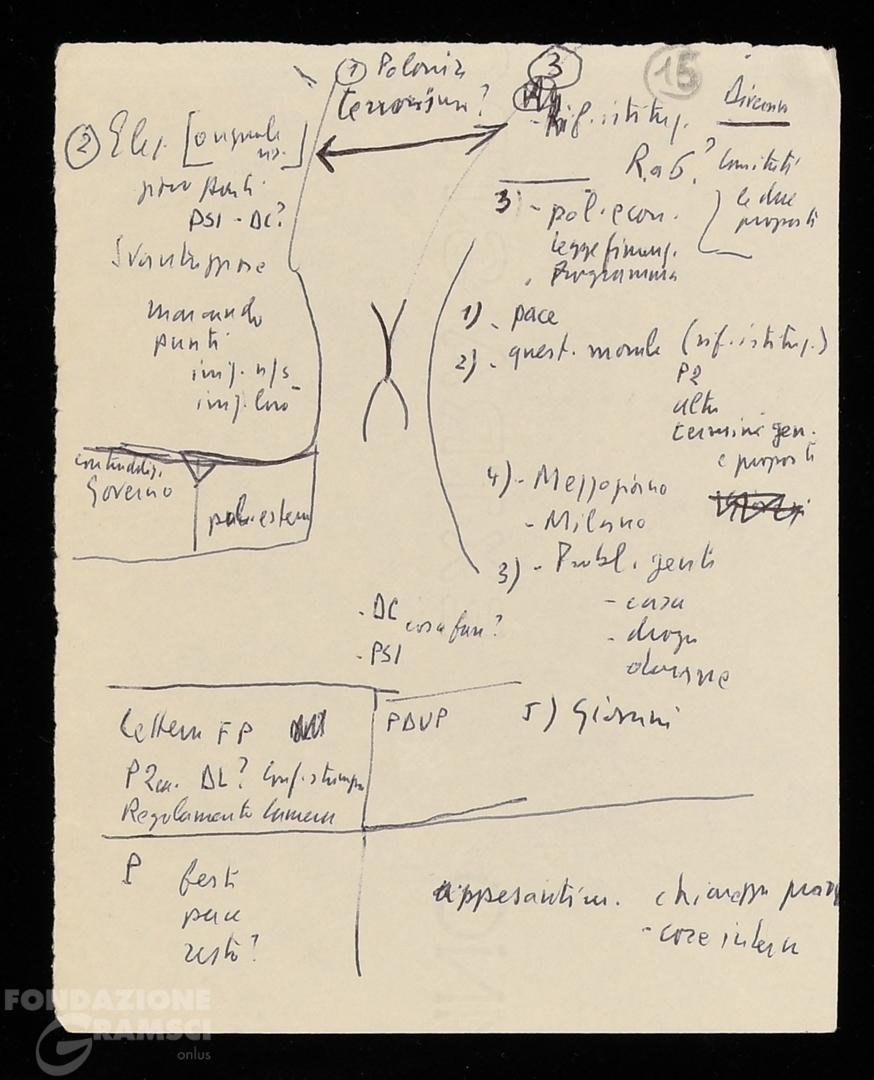 ① Polonia
terrorismo?
③
15
Discorso
② Elez. [originale
ns.]
primi punti
PSI - DC?
Svantaggiose
marcando
punti
imp. n/s
imp. loro
contraddiz.
Governo
pol. estera
- Rif. istituz.
R. o G.? Comitati
le due
proposte
3) - pol. econ.
legge finanz.
Programma
1) - pace
2) - quest. morale (rif. istituz.)
P2
altri
termini gen.
e proposte
4) - Mezzogiorno
- Milano
3) - Probl. gente
- casa
- droga
donne
- DC
cosa fare?
- PSI
5) Giovani
Lettera FP
P2 DC? Conf. stampa
Regolamento Camera
PDUP
P
festa
pace
resto?
appesantim.
- cose interne
FONDAZIONE
GRAMSCI
onlus